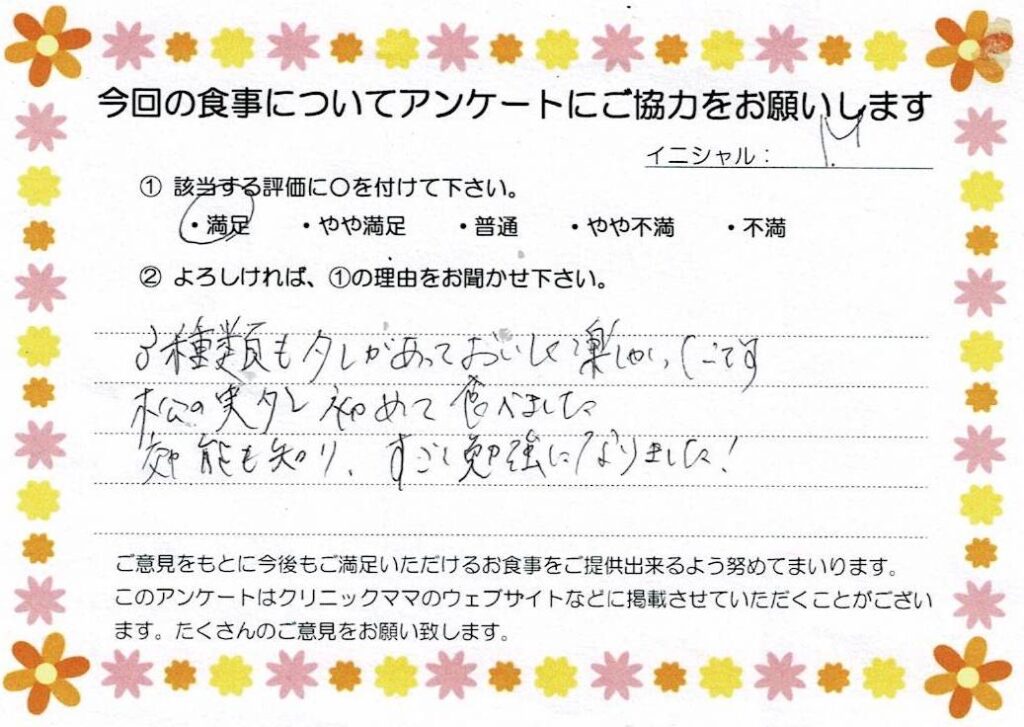 今回の食事についてアンケートにご協力をお願いします
イニシャル： M
① 該当する評価に〇を付けて下さい。
・満足 ・やや満足 ・普通 ・やや不満 ・不満
② よろしければ、①の理由をお聞かせ下さい。
3種類もタレがあっておいしく楽しかったです
松の実タレ初めて食べました
効能も知り、すごく勉強になりました！
ご意見をもとに今後もご満足いただけるお食事をご提供出来るよう努めてまいります。
このアンケートはクリニックママのウェブサイトなどに掲載させていただくことがござい
ます。たくさんのご意見をお願い致します。